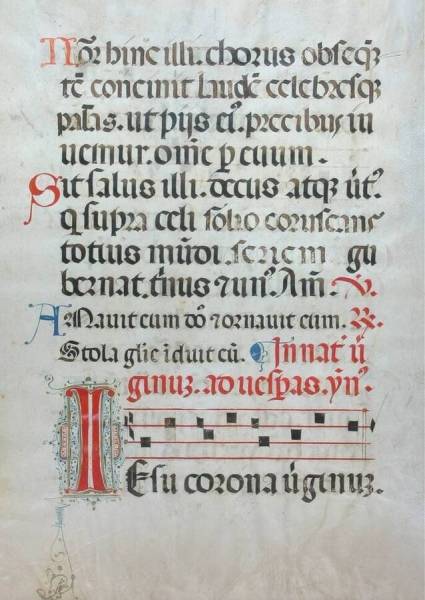 Nor̄ hinc illi. chorus obseq̄̄
tē concinit laudē celebresq̨
pal̄as. ut pijs eī. precibus iu
uemur. om̄e p̱ euum.
Sit salus illi. decus atq̨ ūt᾽.
q̄ supra celi solio coruscans
totius mūdi seriem gu
bernat. t̄nus ⁊ un᾽. Am̄. ℣.
AMauit eum dō᾽ ⁊ ornauit eum. ℟.
Stola gl̄ie īduit eū. ¶ In nat̄ ū
ginuꝫ. ad uesp̱as. yn̄᾽.
IEsu corona ūginuꝫ.